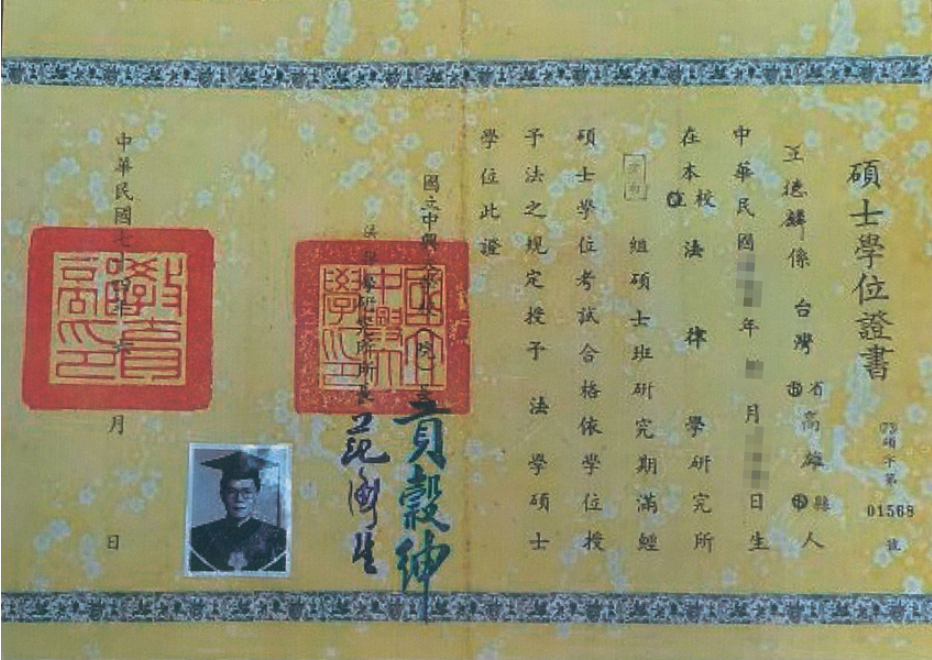 碩士學位證書
73碩字第01568號
王德麟係台灣省市高雄縣市人
中華民國年月日生
在本校院法律學研究所
組碩士班研究期滿經
碩士學位考試合格依學位授
予法之規定授予法學碩士
學位此證
國立中興大學校(院)長貢穀紳
法律學研究所所長
中華民國七十四年六月日